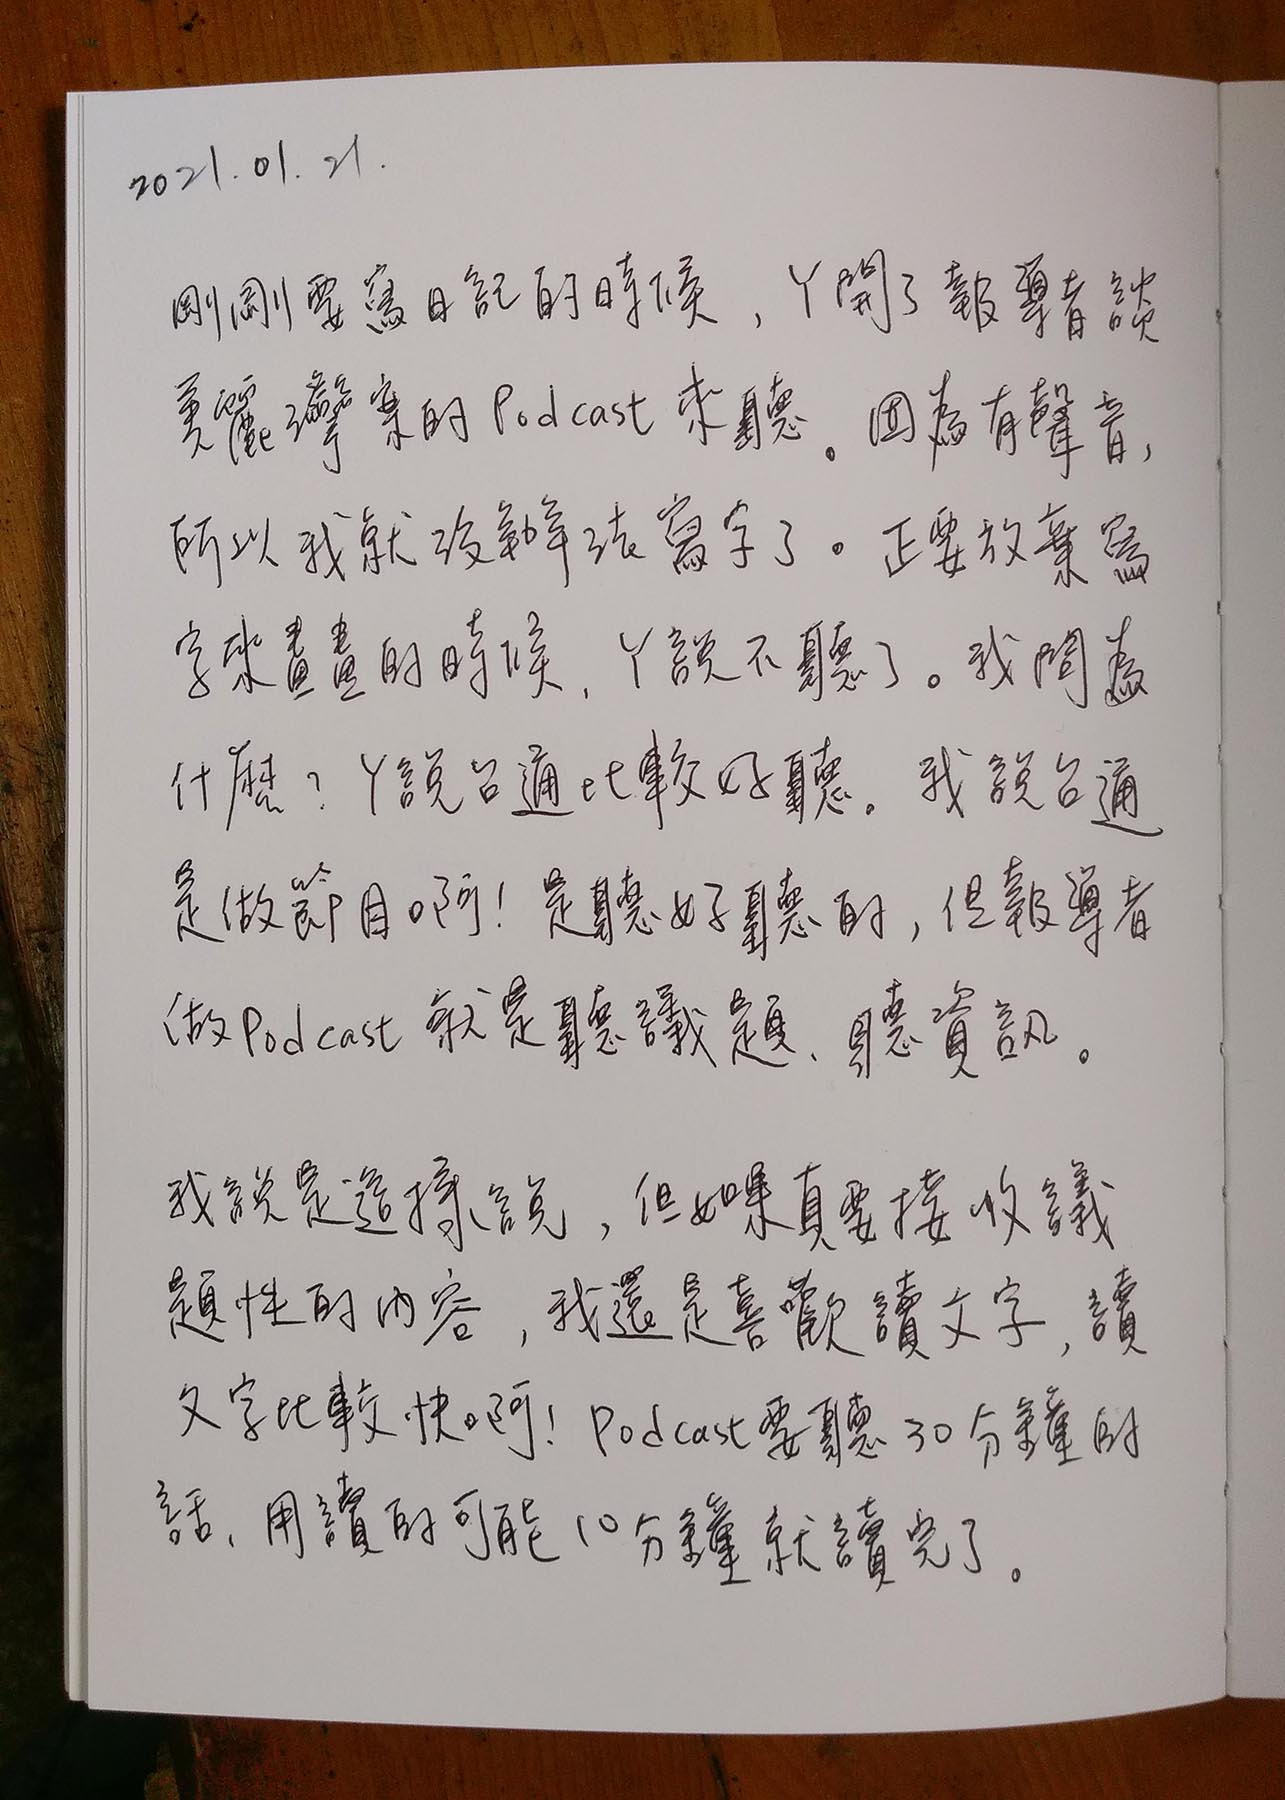 2021.01.21.
剛剛要寫日記的時候，丫開了報導者談
美麗灣案的Podcast來聽。因為有聲音，
所以我就沒辦法寫字了。正要放棄寫
字來畫畫的時候，丫說不聽了。我問為
什麼？丫說台通比較好聽。我說台通
是做節目啊！是聽好聽的，但報導者
做Podcast就是聽議題、聽資訊。
我說是這樣說，但如果真要接收議
題性的內容，我還是喜歡讀文字，讀
文字比較快啊！Podcast要聽30分鐘的
話，用讀的可能10分鐘就讀完了。